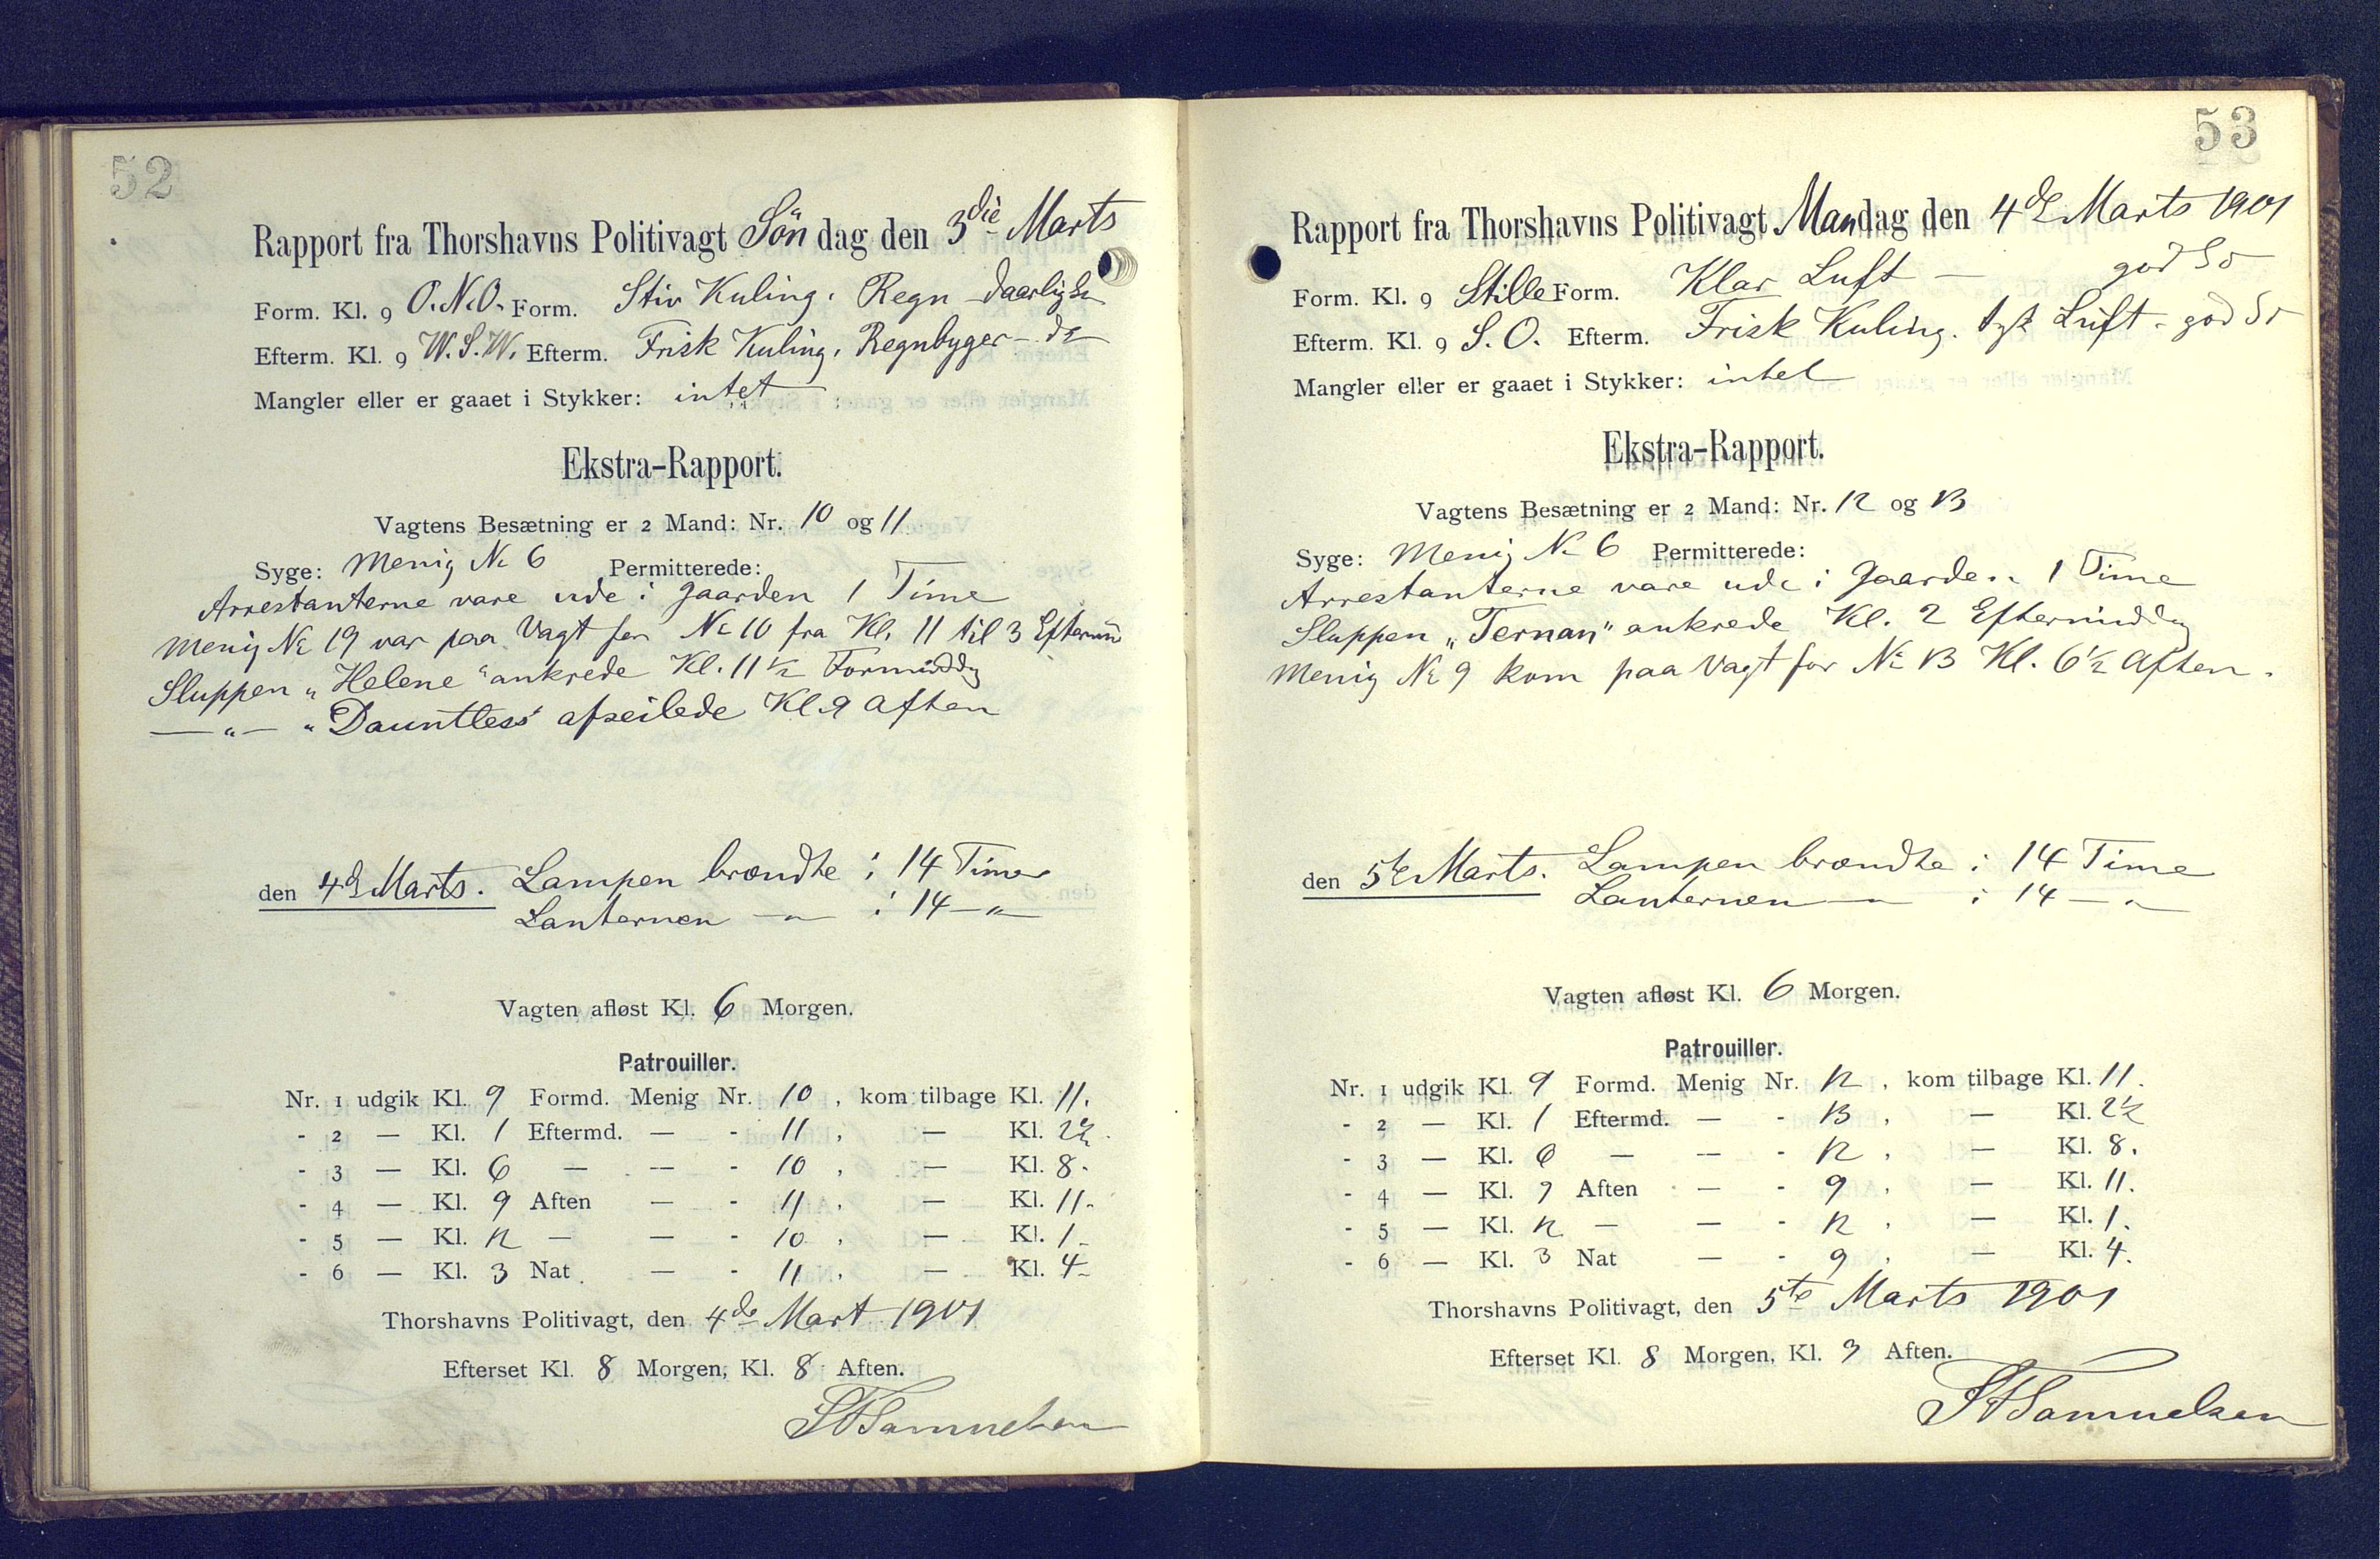 52
Rapport fra Thorshavns Politivagt Søndag den 3die Marts
Form. Kl. 9 O.N.O. Form. Stiv Kuling. Regn - daarlig So
Efterm. Kl. 9 W.S.W. Efterm. Frisk Kuling, Regnbyger - do
Mangler eller er gaaet i Stykker: intet
Ekstra-Rapport.
Vagtens Besætning er 2 Mand: Nr. 10 og 11
Syge: Menig No 6 Permitterede:
Arrestanterne vare ude i Gaarden 1 Time
Menig No 19 var paa Vagt for No 10 fra Kl. 11 til 3 Efterm
Sluppen „Helene“ ankrede Kl. 11½ Formiddg
—„— „Dauntless“ afseilede Kl. 9 Aften
den 4de Marts. Lampen brændte i 14 Timer
Lanternen —„— i 14 —„—
Vagten afløst Kl. 6 Morgen.
Patrouiller.
Nr. 1 udgik Kl. 9 Formd. Menig Nr. 10, kom tilbage Kl. 11.
- 2 — Kl. 1 Eftermd. — - 11, — Kl. 2½.
- 3 — Kl. 6 — — - 10, — Kl. 8.
- 4 — Kl. 9 Aften — - 11, — Kl. 11.
- 5 — Kl. 12 — — - 10, — Kl. 1.
- 6 — Kl. 3 Nat — - 11, — Kl. 4.
Thorshavns Politivagt, den 4de Mart 1901
Efterset Kl. 8 Morgen, Kl. 8 Aften.
Samuelsen
53
Rapport fra Thorshavns Politivagt Mandag den 4de Marts 1901
Form. Kl. 9 Stille Form. Klar Luft — god So
Efterm. Kl. 9 S.O. Efterm. Frisk Kuling. tyk Luft - god So
Mangler eller er gaaet i Stykker: intet
Ekstra-Rapport.
Vagtens Besætning er 2 Mand: Nr. 12 og 13
Syge: Menig No 6 Permitterede:
Arrestanterne vare ude i Gaarden 1 Time
Sluppen „Ternan“ ankrede Kl. 2 Eftermiddg
Menig No 9 kom paa Vagt for No 13 Kl. 6½ Aften.
den 5te Marts. Lampen brændte i 14 Time
Lanternen —„— i 14 —„—
Vagten afløst Kl. 6 Morgen.
Patrouiller.
Nr. 1 udgik Kl. 9 Formd. Menig Nr. 12, kom tilbage Kl. 11.
- 2 — Kl. 1 Eftermd. — - 13, — Kl. 2½
- 3 — Kl. 6 — — - 12, — Kl. 8.
- 4 — Kl. 9 Aften — - 9, — Kl. 11.
- 5 — Kl. 12 — — - 12, — Kl. 1.
- 6 — Kl. 3 Nat — - 9, — Kl. 4.
Thorshavns Politivagt, den 5te Marts 1901
Efterset Kl. 8 Morgen, Kl. 9 Aften.
Samuelsen